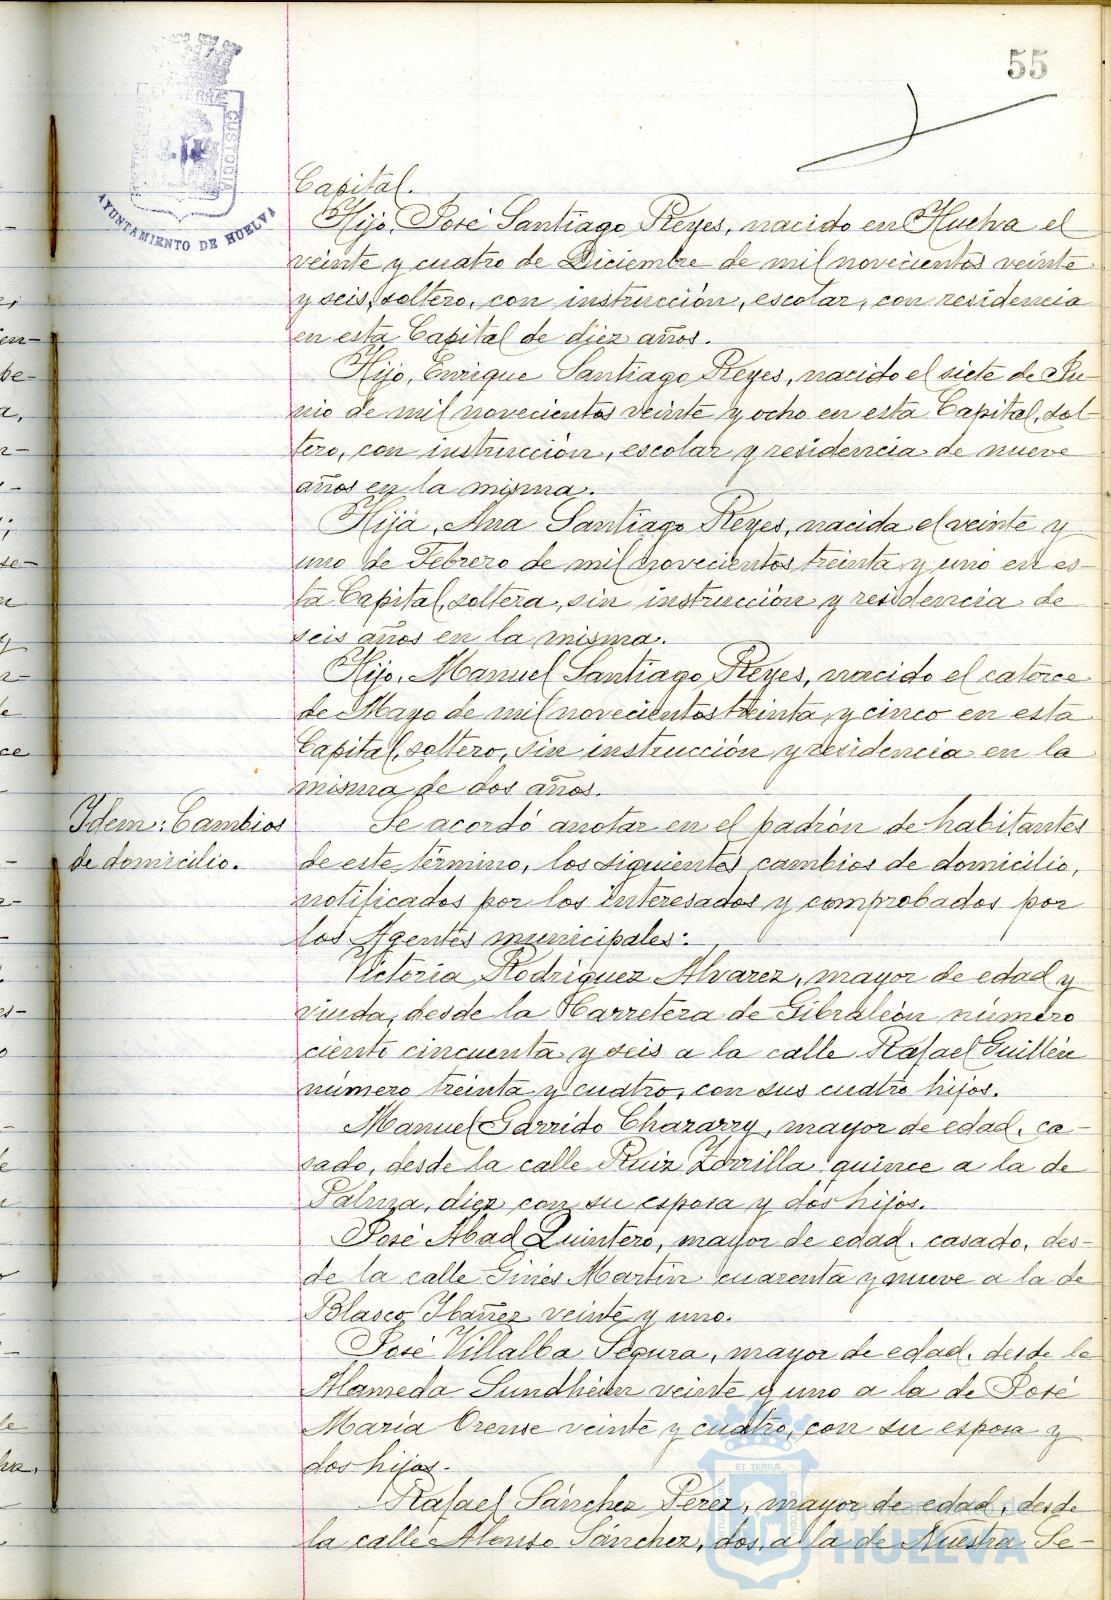 55
TERRÆ
CUSTODIA
AYUNTAMIENTO DE HUELVA
Capital.
Hijo, José Santiago Reyes, nacido en Huelva el
veinte y cuatro de Diciembre de mil novecientos veinte
y seis, soltero, con instrucción, escolar, con residencia
en esta Capital de diez años.
Hijo, Enrique Santiago Reyes, nacido el siete de Ju-
nio de mil novecientos veinte y ocho en esta Capital, sol-
tero, con instrucción, escolar y residencia de nueve
años en la misma.
Hija, Ana Santiago Reyes, nacida el veinte y
uno de Febrero de mil novecientos treinta y uno en es-
ta Capital, soltera, sin instrucción y residencia de
seis años en la misma.
Hijo, Manuel Santiago Reyes, nacido el catorce
de Mayo de mil novecientos treinta y cinco en esta
Capital, soltero, sin instrucción y residencia en la
misma de dos años.
Idem: Cambios
de domicilio.
Se acordó anotar en el padrón de habitantes
de este término, los siguientes cambios de domicilio,
notificados por los interesados y comprobados por
los Agentes municipales:
Victoria Rodríguez Alvarez, mayor de edad y
viuda, desde la Carretera de Gibraleón número
ciento cincuenta y seis a la calle Rafael Guillén
número treinta y cuatro, con sus cuatro hijos.
Manuel Garrido Chazarry, mayor de edad, ca-
sado, desde la calle Ruiz Zorrilla quince a la de
Palma, diez con su esposa y dos hijos.
José Abad Quintero, mayor de edad, casado, des-
de la calle Ginés Martín cuarenta y nueve a la de
Blasco Ibañez veinte y uno.
José Villalba Segura, mayor de edad, desde la
Alameda Sundheim veinte y uno a la de José
María Orense veinte y cuatro, con su esposa y
dos hijos.
Rafael Sánchez Pérez, mayor de edad, desde
la calle Alonso Sánchez, dos, a la de Nuestra Se-
ET TERRÆ
Ayuntamiento de
HUELVA